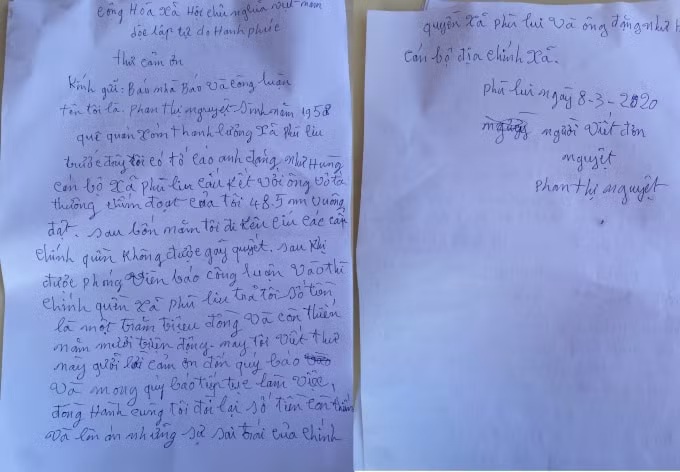 Công Hòa Xã Hôi chủ nghĩa việt nam
đôc lâp tự do Hanh phúc
thư cảm ơn
Kính gửi: Báo nhà Báo và công luân
tên tôi là. phan thi nguyệt Sinh năm 1958
quê quán xom thanh lương xã phú liu
trước đây tôi có tố cáo anh đặng như Hưng
cán bộ xã phú liu câu kết với ông võ tá
thường chiếm đoạt của tôi 48.5 m vuông
đất. sau bốn năm tôi đi kêu cíu các cấp
chính quền không được gảy quyết. sau khi
được phóng viên báo công luân vào thì
chính quền xã phú liu trả tôi số tiền
là một trăm triệu đồng và còn thiếu
năm mươi triện đồng. nay tôi viết thư
này gưởi lời cảm ơn đến quý báo
và mong quý báo tiếp tục làm việc,
đông Hành cùng tôi đòi lại số tiền còn thiếu
và lên án những sự sai trái của chính
quyền xã phú lui và ông đặng như H
cán bộ địa chính xã.
phú lui ngày 8-3-2020
người viết đơn
nguyệt
phan thị nguyệt